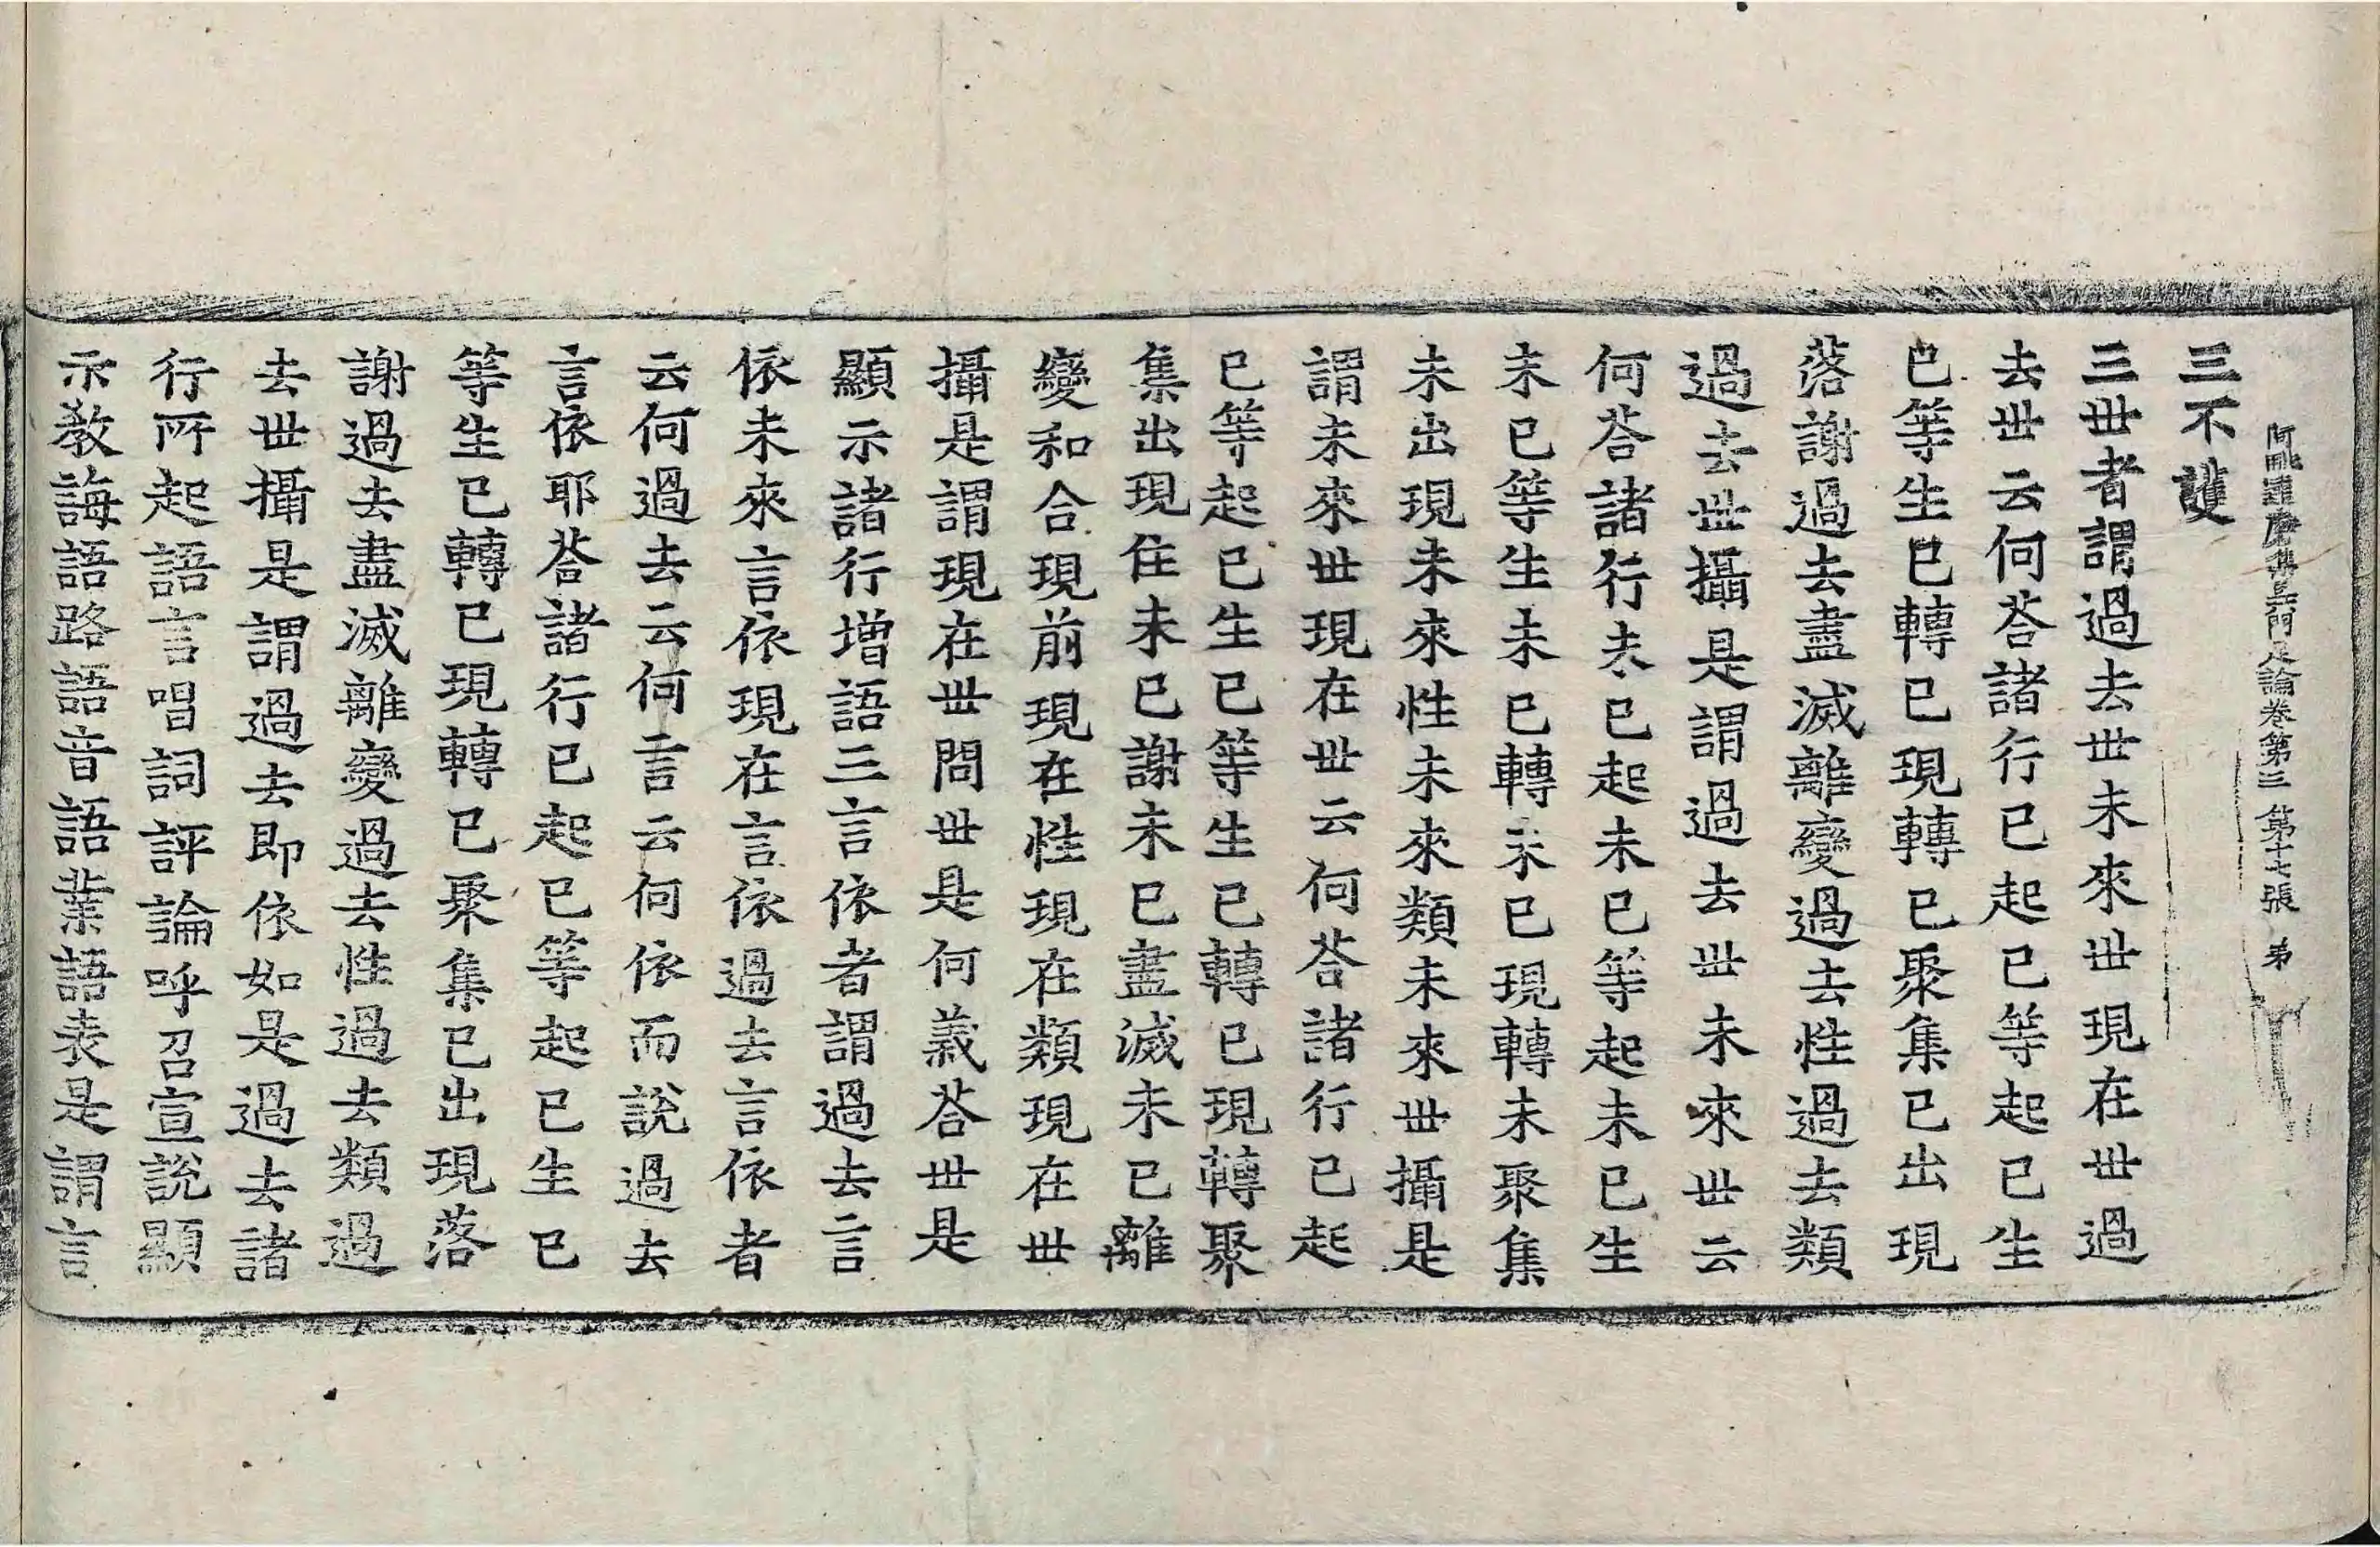 阿毗達磨集異門足論卷第三　第十七張　弟
三不護
三世者謂過去世未來世現在世過
去世云何荅諸行已起已等起已生
已等生已轉已現轉已聚集已出現
落謝過去盡滅離變過去性過去類
過去世攝是謂過去世未來世云
何荅諸行未已起未已等起未已生
未已等生未已轉未已現轉未聚集
未出現未來性未來類未來世攝是
謂未來世現在世云何荅諸行已起
已等起已生已等生已轉已現轉聚
集出現住未已謝未已盡滅未已離
變和合現前現在性現在類現在世
攝是謂現在世問世是何義荅世是
顯示諸行增語三言依者謂過去言
依未來言依現在言依過去言依者
云何過去云何言云何依而說過去
言依耶荅諸行已起已等起已生已
等生已轉已現轉已聚集已出現落
謝過去盡滅離變過去性過去類過
去世攝是謂過去即依如是過去諸
行所起語言唱詞評論呼召宣說顯
示教誨語路語音語業語表是謂言